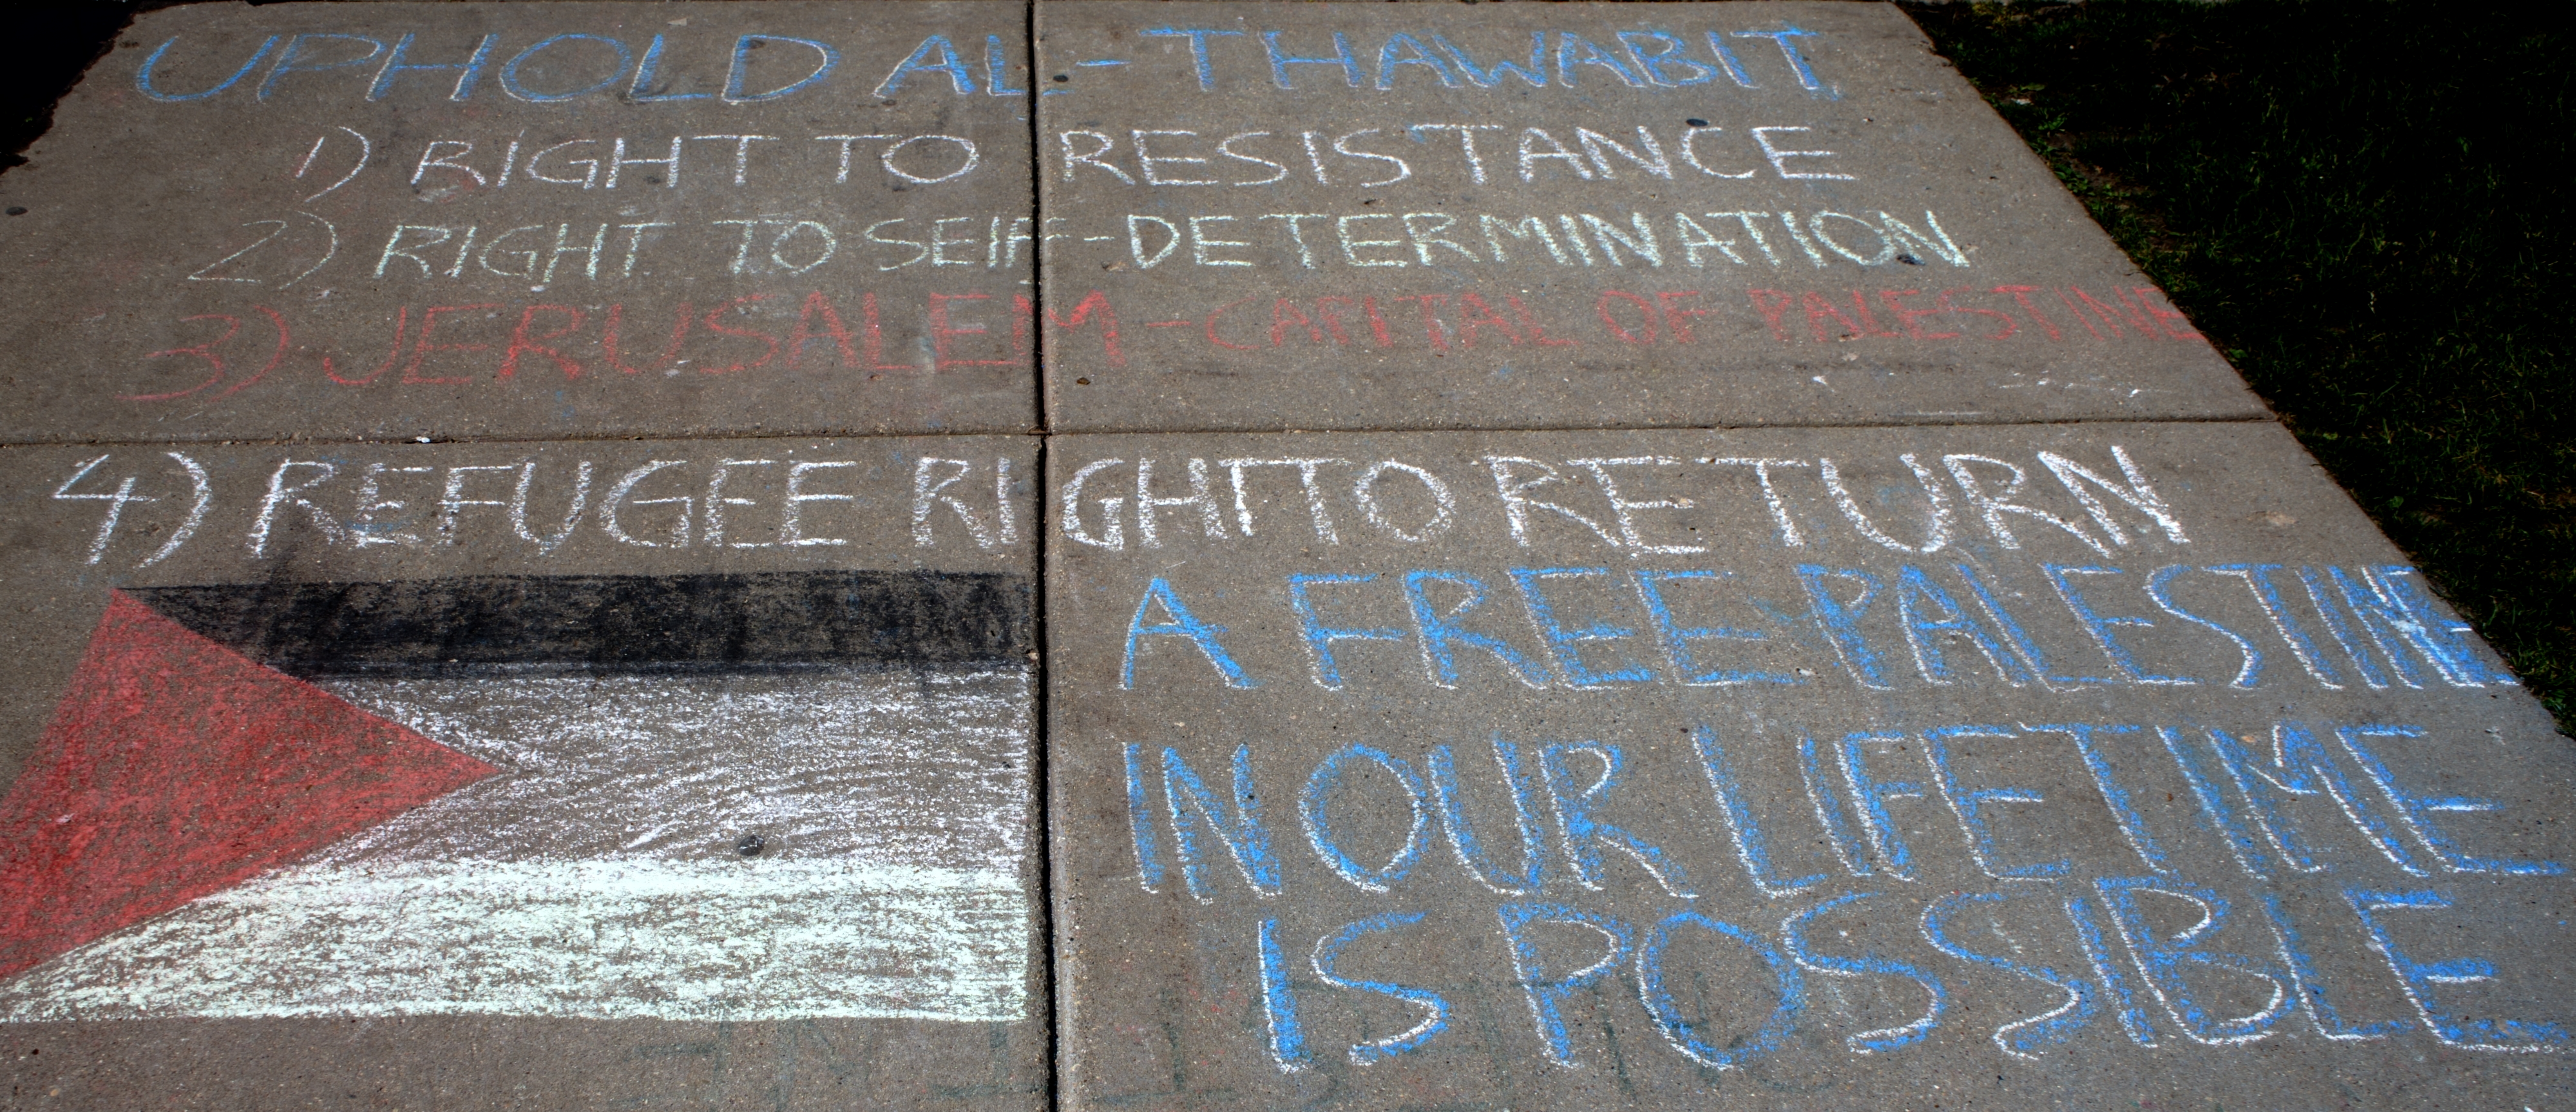 UPHOLD AL-THAWABIT
1) RIGHT TO RESISTANCE
2) RIGHT TO SElF-DETERMINATION
3) JERUSALEM - CAPITAL OF PALESTINE
4) REFUGEE RIGHT TO RETURN
A FREE PALESTINE
IN OUR LIFETIME
IS POSSIBLE